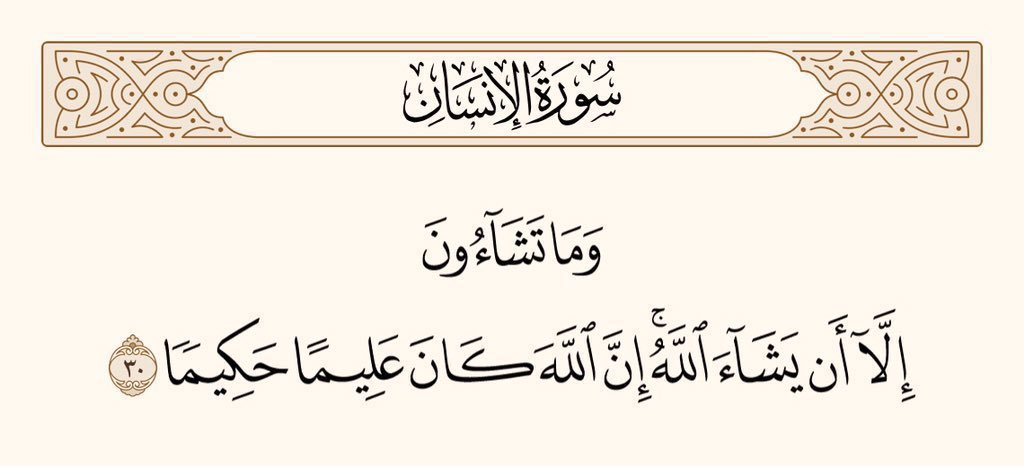 سُورَةُ الإِنسَانِ
وَمَا تَشَآءُونَ
إِلَّآ أَن يَشَآءَ ٱللَّهُۚ إِنَّ ٱللَّهَ كَانَ عَلِيمًا حَكِيمَا ٣٠